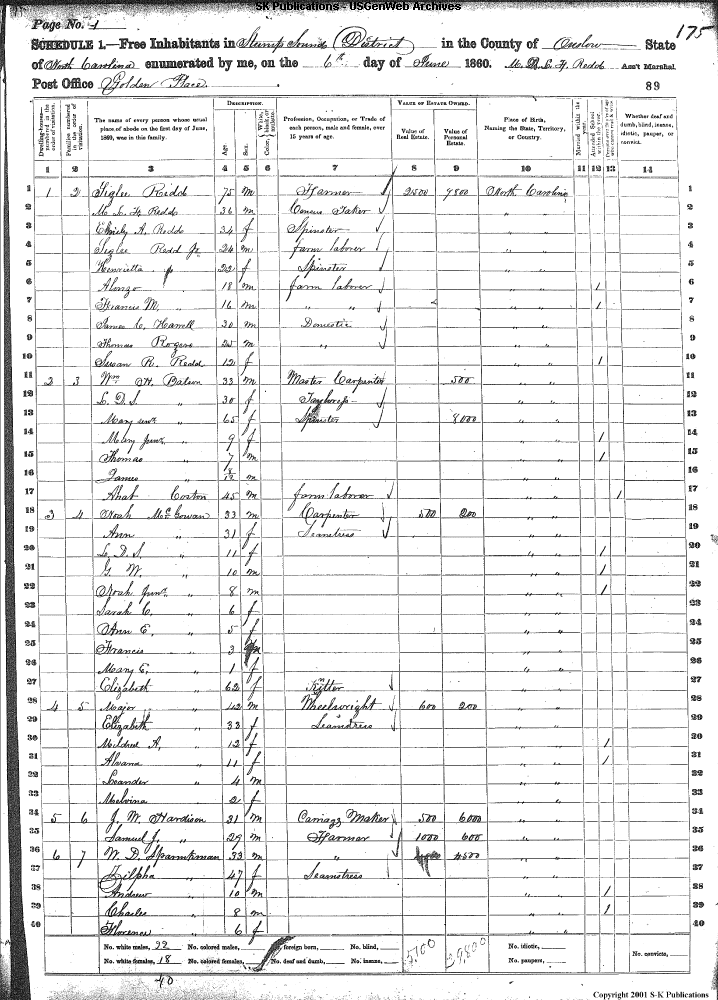 SK Publications - USGenWeb Archives
Page No. 1
175
SCHEDULE 1.—Free Inhabitants in Stump Sound District in the County of Onslow State
of North Carolina enumerated by me, on the 6th day of June 1860. M. L. F. Redd Ass't Marshal
Post Office Golden Place 89
Dwelling-houses—numbered in the order of visitation.
Families numbered in the order of visitation.
The name of every person whose usual place of abode on the first day of June, 1860, was in this family.
DESCRIPTION.
Age. Sex. Color,
Profession, Occupation, or Trade of each person, male and female, over 15 years of age.
VALUE OF ESTATE OWNED.
Value of Real Estate. Value of Personal Estate.
Place of Birth, Naming the State, Territory, or Country.
Married within the year.
Attended School within the year.
Whether deaf and dumb, blind, insane, idiotic, pauper, or convict.
1 2 3 4 5 6 7 8 9 10 11 12 13 14
1 1 2 Redd 75 m Farmer 2500 9800 North Carolina 1
2 M. L. F. Redd 36 m Census Taker " 2
3 Emily A. Redd 34 f Spinster " 3
4 Redd Jr 24 m farm laborer " " 4
5 Henrietta " 22 f Spinster " " 5
6 Alonzo " 18 m farm laborer " " / 6
7 Francis M. " 16 m " " " " / 7
8 James C. Harrell 30 m Domestic " " 8
9 Thomas Rogers 25 m " " " 9
10 Susan R. Redd 12 f " " / 10
11 2 3 Wm H. Batson 33 m Master Carpenter 500 " " 11
12 L. D. S. " 30 f Tayloress " " 12
13 Mary senr " 65 f Spinster 8000 " " 13
14 Mary junr " 9 f " " / 14
15 Thomas " 7 m " " / 15
16 James " m " " 16
17 Ahab Coston 45 m farm laborer " " / 17
18 3 4 Noah McGowan 33 m Carpenter 500 200 " " 18
19 Ann " 31 f Seamstress " " 19
20 L. D. S. " 11 f " " / 20
21 G. W. " 10 m " " / 21
22 Noah junr " 8 m " " / 22
23 Sarah C. " 6 f " " 23
24 Ann E. " 5 f " " 24
25 Francis " 3 m " " 25
26 Mary E. " 1 f " " 26
27 Elizabeth " 62 f " " 27
28 4 5 Major " 42 m Wheelwright 600 200 " " 28
29 Elizabeth " 33 f Seamstress " " 29
30 Mildred A. " 12 f " " / 30
31 Alvana " 11 f " " / 31
32 Leander " 4 m " " 32
33 Melvina " 2 f " " 33
34 5 6 J. W. Hardison 31 m Carriage Maker 500 6000 " " 34
35 Samuel J. " 29 m Farmer 1000 600 " " 35
36 6 7 W. D. 33 m " 4500 " " 36
37 Zilpha " 47 f Seamstress " " 37
38 Andrew " 10 m " " / 38
39 Charles " 8 m " " / 39
40 Florence " 6 f " " 40
No. white males, 22 No. colored males, foreign born, No. blind, 5100 29,800 No. idiotic,
No. white females, 18 No. colored females, No. deaf and dumb, No. insane, No. paupers, No. convicts,
40
Copyright 2001 S-K Publications